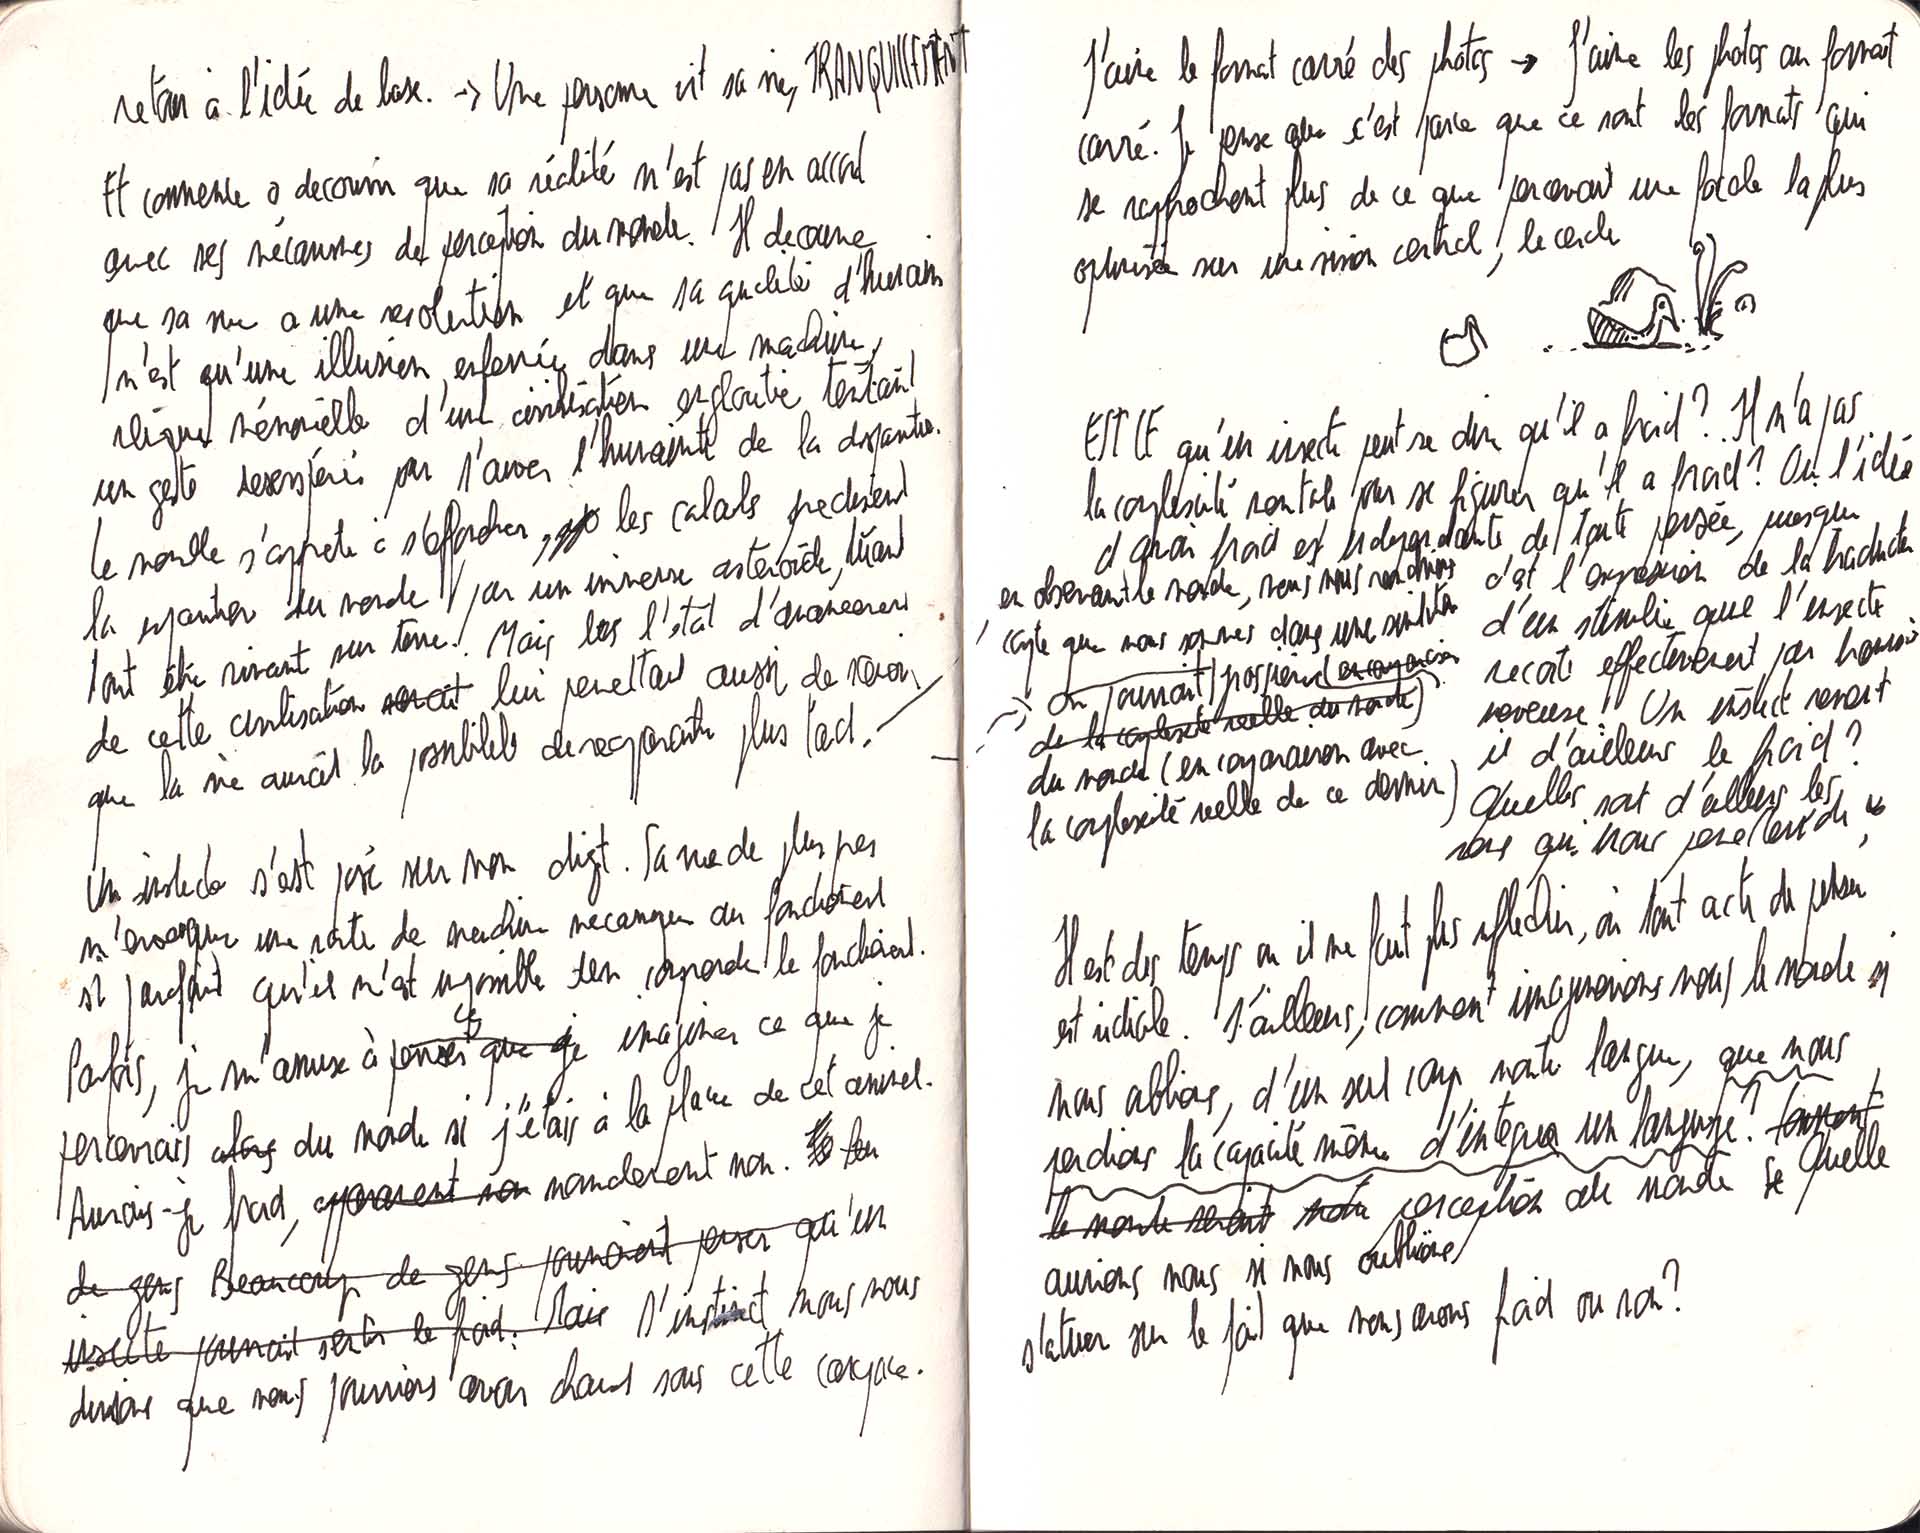 retour à l'idée de base. → Une personne vit sa vie, TRANQUILLEMENT
Et commence a decouvrir que sa réalité n'est pas en accord
avec ses mécanismes de perception du monde. Il decouvre
que sa vue a une resolution et que sa qualité d'humain
n'est qu'une illusion, enfermée dans une machine,
relique mémorielle d'une civilisation engloutie tentant
un geste desespéré pour sauver l'humanité de la disparition.
Le monde s'apprete à s'effondrer, les calculs predisent
la du monde par un immense asteroïde, tuant
tout être vivant sur terre. Mais l'état d'avancement
de cette civilisation serait lui permettait aussi de savoir
que la vie aurait la possibilité de reapparaitre plus tard.
Un insecte s'est posé sur mon doigt. Sa vue de plus pres
m'evoque une sorte de machine mecanique au fonctionnement
si parfait qu'il m'est impossible d'en comprendre le fonctionnement.
Parfois, je m'amuse à penser que je imaginer ce que je
percevrais alors du monde si j'étais à la place de cet animal.
Aurais-je froid, apparement non normalement non.
de gens Beaucoup de gens pourraient penser qu'un
insecte pourrait sentir le froid. Mais D'instinct nous nous
disons que nous pourrions avoir chaud sous cette carapace.
J'aime le format carré des photos → J'aime les photos au format
carré. Je pense que c'est parce que ce sont les formats qui
se rapprochent plus de ce que percevrait une focale la plus
optimisée sur une vision central, le cercle
EST CE qu'un insecte peut se dire qu'il a froid? Il n'a pas
la complexité mentale pour se figurer qu'il a froid? Ou l'idée
d'avoir froid est independante de toute pensée, puisque
c'est l'expression de la traduction
d'un stimulie que l'insecte
recoit effectivement par
nerveuse! Un insect ressent
il d'ailleurs le froid?
Quelles sont d'ailleurs les
sens qui nous permettent de
en observant le monde, nous nous rendrions
compte que nous sommes dans une simulation
On pourrait (en comparaison
de la complexité réelle du monde)
du monde (en comparaison avec
la complexité réelle de ce dernier)
Il est des temps ou il ne faut plus refflechir, où tout acte de penser
est ridicule. D'ailleurs, comment imaginerions nous le monde si
nous oublions, d'un seul coup notre langue, que nous
perdions la capacité même d'intégrer un language? Comment
le monde serait notre perception du monde Quelle
aurions nous si nous oublions
statuer sur le fait que nous avons froid ou non?